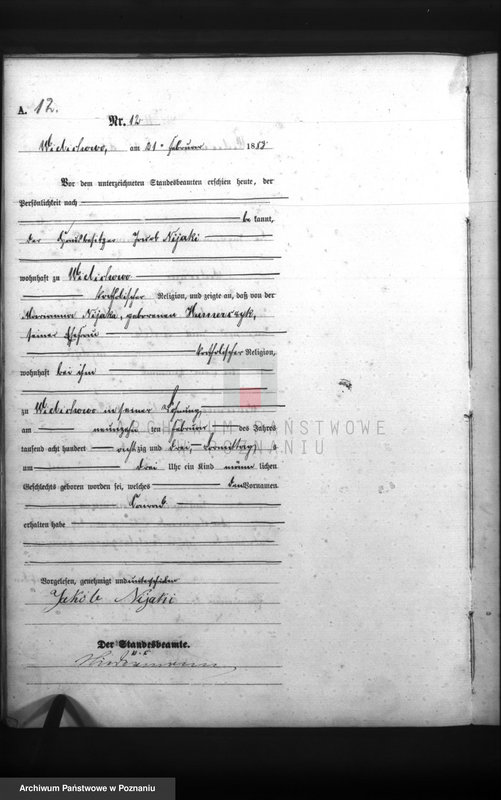 A. 12.
Nr. 12
Wielichowo, am 21. Februar 1883
Vor dem unterzeichneten Standesbeamten erschien heute, der
Persönlichkeit nach
be kannt,
der Hausbesitzer Jacob Nijaki
wohnhaft zu Wielichowo
katholischer Religion, und zeigte an, daß von der
Marianna Nijaka, geborenen
seiner Ehefrau
katholischer Religion,
wohnhaft bei ihm
zu Wielichowo in seiner Wohnung
am neunzehn ten Februar des Jahres
tausend acht hundert acht zig und drei, Vormittags
um drei Uhr ein Kind männ lichen
Geschlechts geboren worden sei, welches den Vornamen
Konrad
erhalten habe
Vorgelesen, genehmigt und unterschrieben
Jakób Nijaki
Der Standesbeamte.
Niedermann
ARCHIWUM PAŃSTWOWE
W POZNANIU
Archiwum Państwowe w Poznaniu